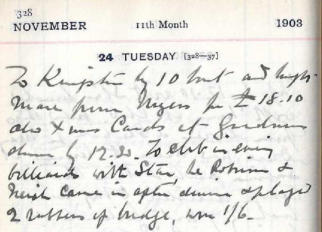 328
NOVEMBER 11th Month 1903
24 TUESDAY [328—37]
To Kingston by 10 boat and bought
mare from Myers for £18.10
also Xmas Cards at Gardners
by 12.20. To club in eveg
billiards with Star, he Robins &
came in after dinner & played
2 rubbers of bridge, won 1/6.